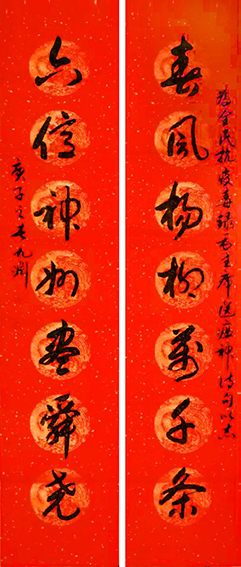 为全民抗疫書録毛主席送瘟神诗句以志
春风杨柳萬千条
六億神州尽舜尧
庚子之春九